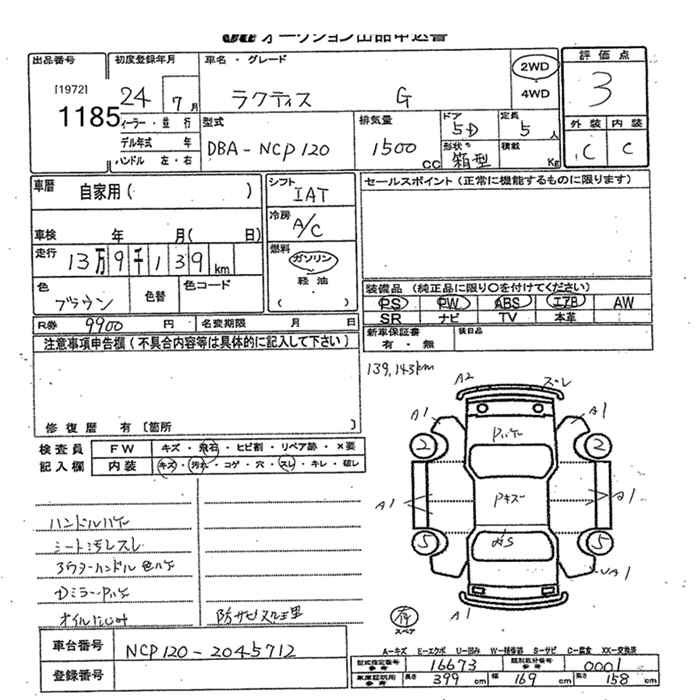 オークション出品申込書
出品番号 初度登録年月 車名・グレード 2WD 4WD 評価点
[1972] 1185 24 7月 ラクティス G 3
ィーラー・並行 型式 排気量 ドア 5D 定員 5人 外装 内装
デル年式 年 DBA-NCP120 1500cc 形状 箱型 積載 Kg C C
ハンドル 左・右
車歴 自家用( ) シフト IAT セールスポイント (正常に機能するものに限ります)
冷房 A/C
車検 年 月( 日)
走行 13万9千139km 燃料 ガソリン
軽油
( )
色 ブラウン 色替 色コード 装備品 (純正品に限り○を付けてください)
PS PW ABS エアB AW
SR ナビ TV 本革
R券 9900円 名変期限 月 日 新車保証書 有・無 後日品
注意事項申告欄 (不具合内容等は具体的に記入して下さい)
139,143km
A2 ズレ
A1 A1
2 2
Pキズ
A1 A1
5 5
A1
A1
修復歴 有〔箇所 〕
検査員 FW キズ・飛石・ヒビ割・リペア跡・×要
記入欄 内装 キズ・汚れ・コゲ・穴・スレ・キレ・破レ
ハンドルハゲ
シート汚レスレ
Dミラー
オイルにじみ
スペア
A-キズ E-エクボ U-凹み W-補修跡 S-サビ C-腐食 XX-交換済
車台番号 NCP120-2045712
型式指定番号 参考 16673 類別区分番号 参考 0001
登録番号
車庫証明用 参考 長さ 399cm 幅 169cm 高さ 158cm